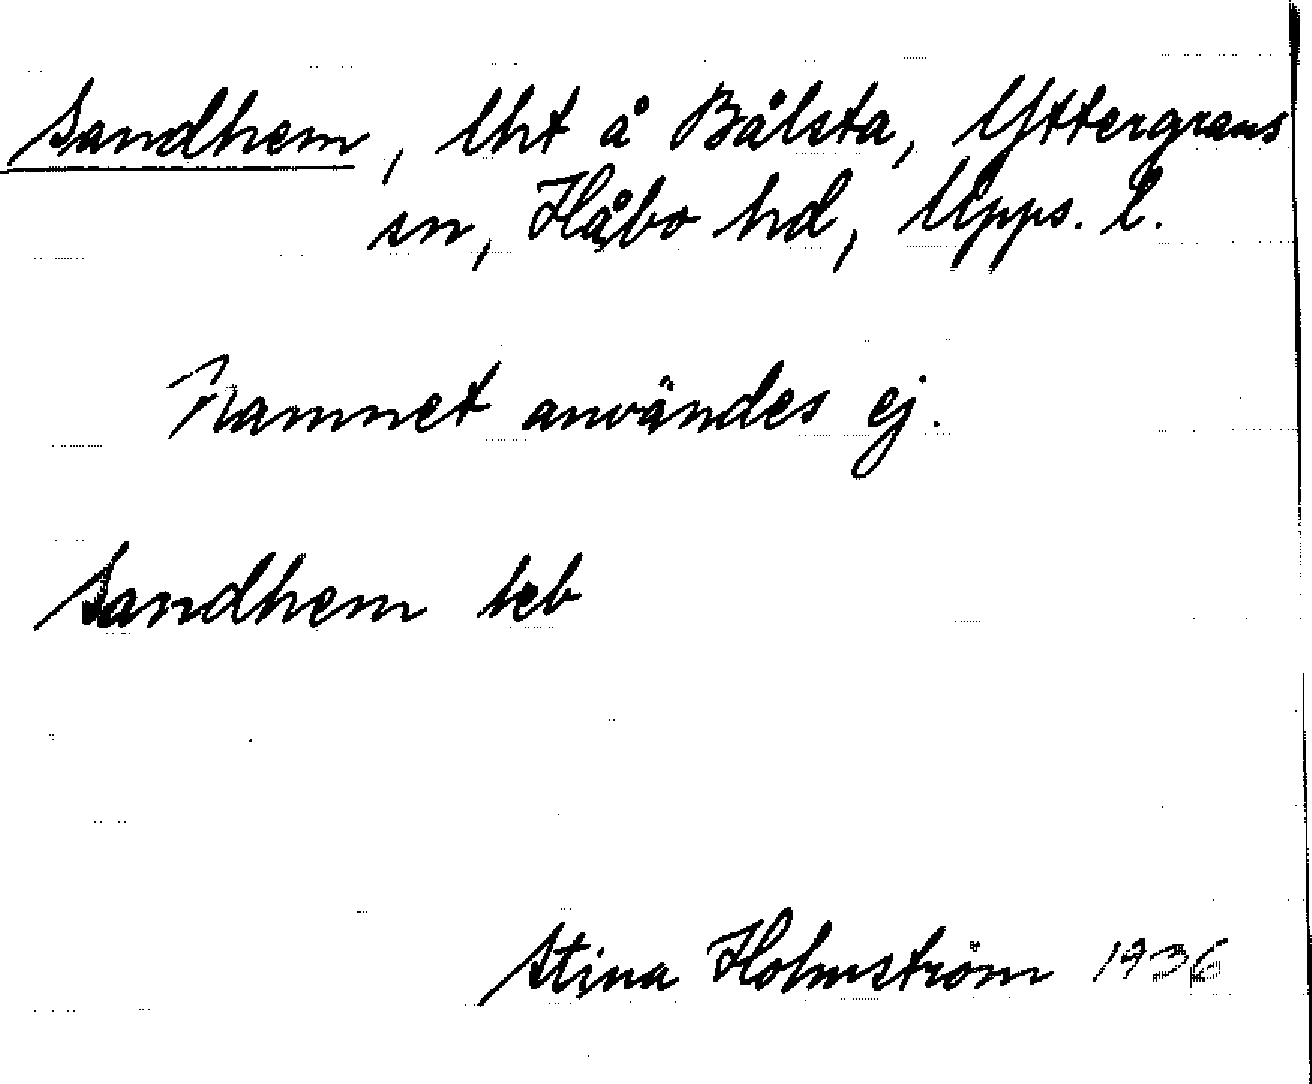 Sandhem, lht å Bålsta, Yttergrans
sn, Håbo hd, Upps. l.
Namnet användes ej.
Sandhem teb
Stina Holmström 1936